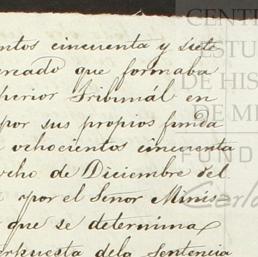 entos cincuenta y siete
ercado que formaba
perior Tribunál en
por sus propios funda
ochocientos cincuenta
cho de Diciembre del
por el Señor Minis
que se determina
rpuesta dela Sentencia
CENT
ESTU
DE HIS
DE M
FUND
Carlo